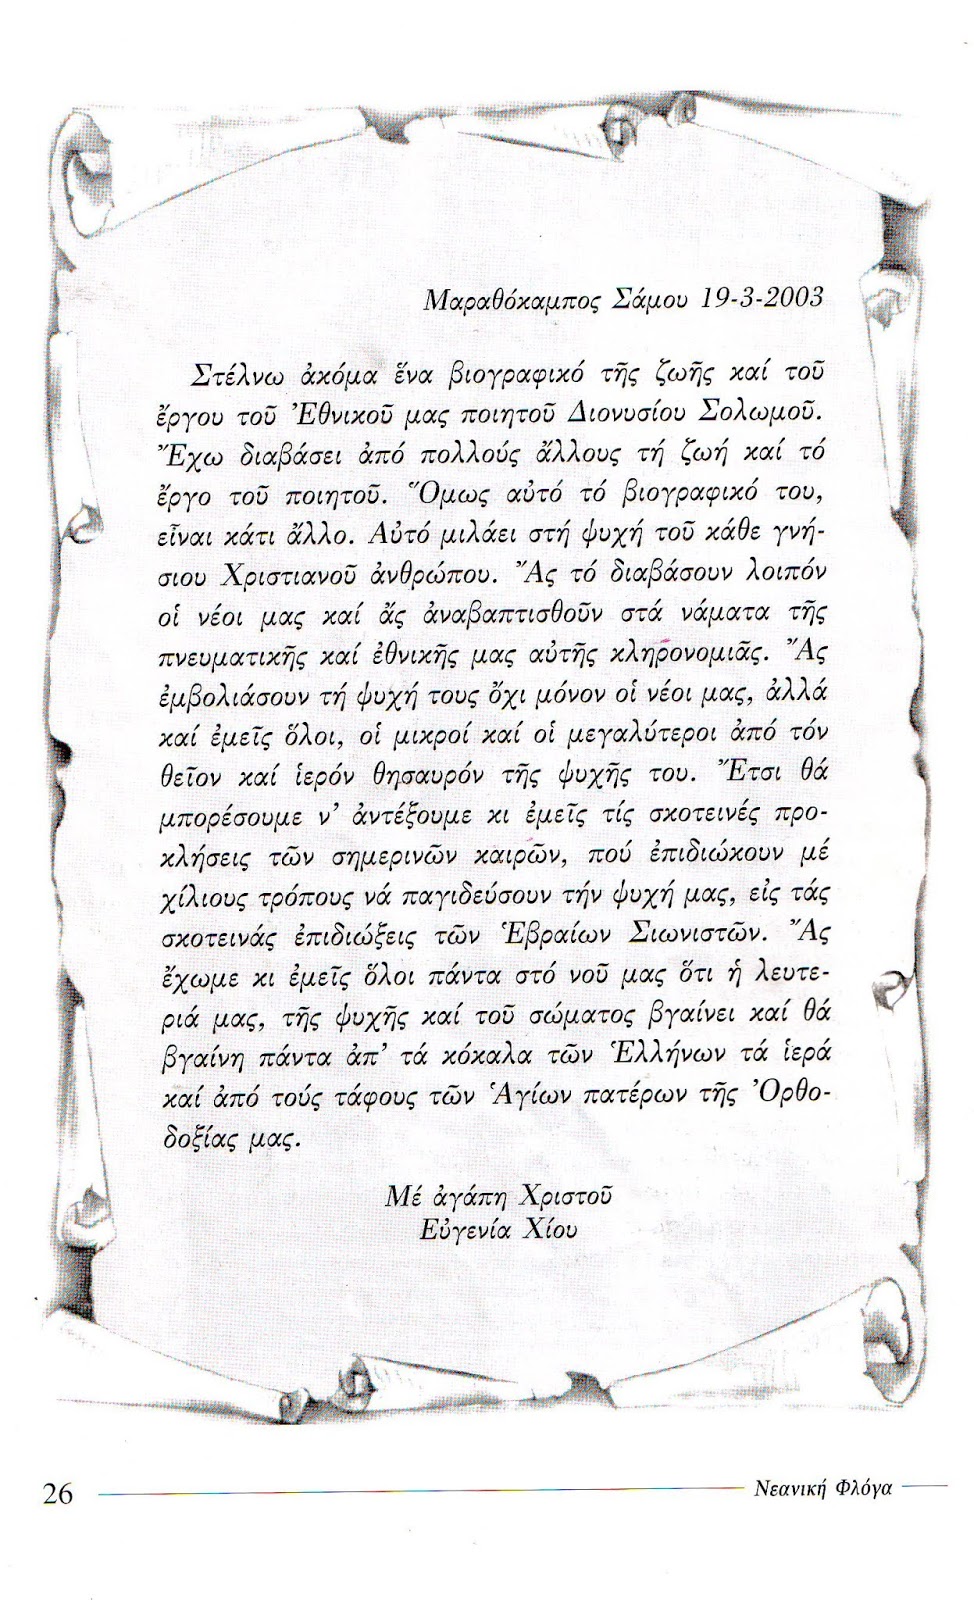 Μαραθόκαμπος Σάμου 19-3-2003
Στέλνω ἀκόμα ἕνα βιογραφικό τῆς ζωῆς καί τοῦ
ἔργου τοῦ Ἐθνικοῦ μας ποιητοῦ Διονυσίου Σολωμοῦ.
Ἔχω διαβάσει ἀπό πολλούς ἄλλους τή ζωή καί τό
ἔργο τοῦ ποιητοῦ. Ὅμως αὐτό τό βιογραφικό του,
εἶναι κάτι ἄλλο. Αὐτό μιλάει στή ψυχή τοῦ κάθε γνή-
σιου Χριστιανοῦ ἀνθρώπου. Ἄς τό διαβάσουν λοιπόν
οἱ νέοι μας καί ἄς ἀναβαπτισθοῦν στά νάματα τῆς
πνευματικῆς καί ἐθνικῆς μας αὐτῆς κληρονομιᾶς. Ἄς
ἐμβολιάσουν τή ψυχή τους ὄχι μόνον οἱ νέοι μας, ἀλλά
καί ἐμεῖς ὅλοι, οἱ μικροί καί οἱ μεγαλύτεροι ἀπό τόν
θεῖον καί ἱερόν θησαυρόν τῆς ψυχῆς του. Ἔτσι θά
μπορέσουμε ν' ἀντέξουμε κι ἐμεῖς τίς σκοτεινές προ-
κλήσεις τῶν σημερινῶν καιρῶν, πού ἐπιδιώκουν μέ
χίλιους τρόπους νά παγιδεύσουν τήν ψυχή μας, εἰς τάς
σκοτεινάς ἐπιδιώξεις τῶν Ἑβραίων Σιωνιστῶν. Ἄς
ἔχωμε κι ἐμεῖς ὅλοι πάντα στό νοῦ μας ὅτι ἡ λευτε-
ριά μας, τῆς ψυχῆς καί τοῦ σώματος βγαίνει καί θά
βγαίνη πάντα ἀπ' τά κόκαλα τῶν Ἑλλήνων τά ἱερά
καί ἀπό τούς τάφους τῶν Ἁγίων πατέρων τῆς Ὀρθο-
δοξίας μας.
Μέ ἀγάπη Χριστοῦ
Εὐγενία Χίου
26 Νεανική Φλόγα